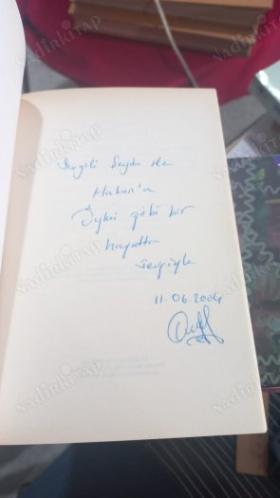 Sevgili Seyda ile
Hakan'a
Öykü gibi bir
hayatta
sevgiyle
11.06.2004
NadirKitap